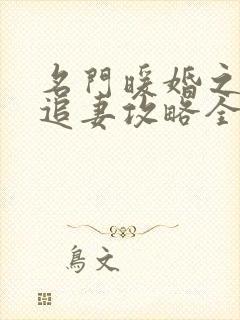 名門暖婚之
追妻攻略全
鳥文